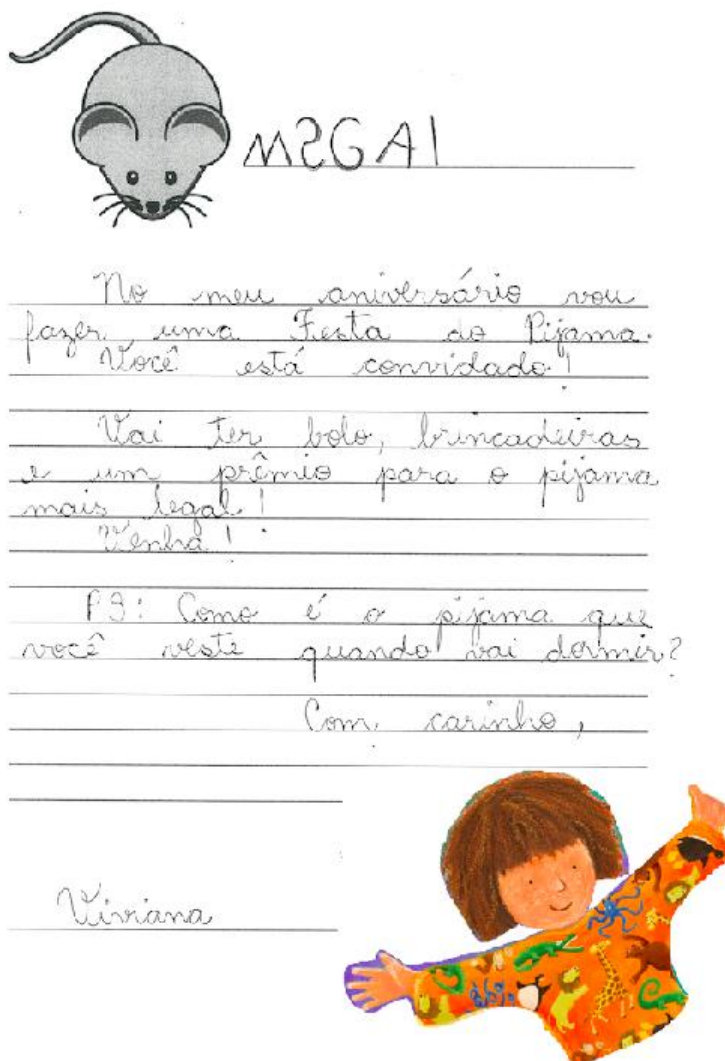 MSGAI
No meu aniversário vou
fazer uma Festa do Pijama.
Você está convidado!
Vai ter bolo, brincadeiras
e um prêmio para o pijama
mais legal!
Venha!
PS: Como é o pijama que
você veste quando vai dormir?
Com carinho,
Viviana